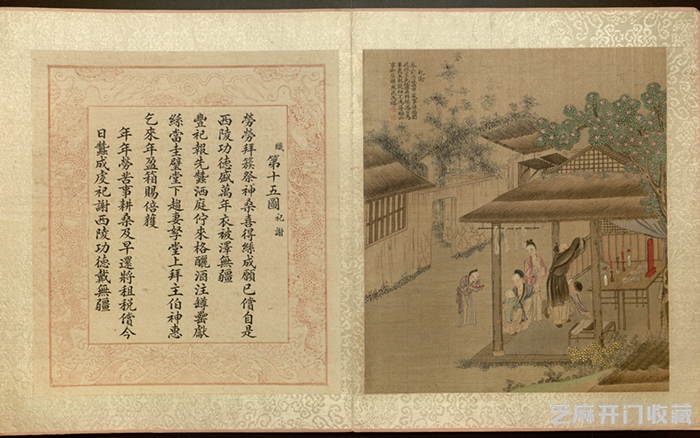 織 第十五圖 祀謝
勞勞拜簇祭神桑喜得絲成願已償自是
西陵功德盛萬年衣被澤無疆
豐祀報先蠶洒庭佇來格釃酒注罇罍獻
絲當圭璧堂下趨妻孥堂上拜主伯神惠
乞來年盈箱賜倍獲
年年勞苦事耕桑及早還將租稅償今
日蠶成虔祀謝西陵功德戴無疆
祀謝
芝麻开门收藏